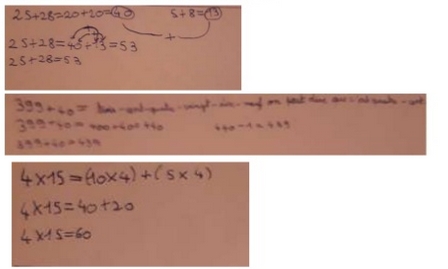 25+28=20+20=40 5+8=13
+
25+28=40+13=53
25+28=53
399+40=
399+40=400+40 440-1=439
399+40=439
4×15=(10×4)+(5×4)
4×15=40+20
4×15=60